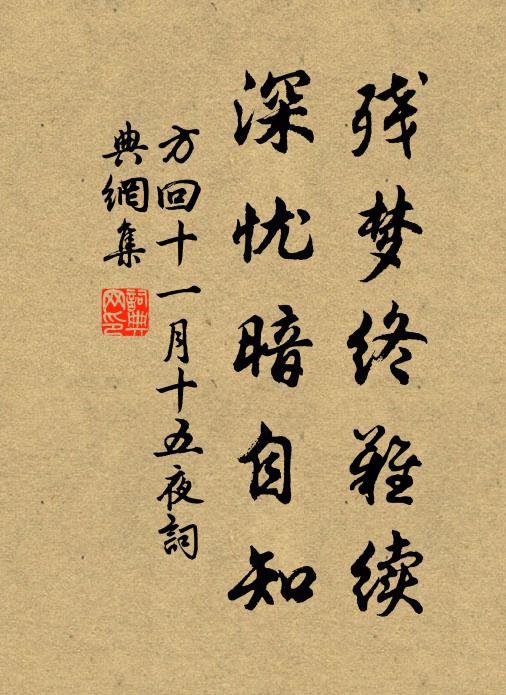 残梦终难续
深忧暗自知
方回十一月十五夜詞
典網集
詞典网印